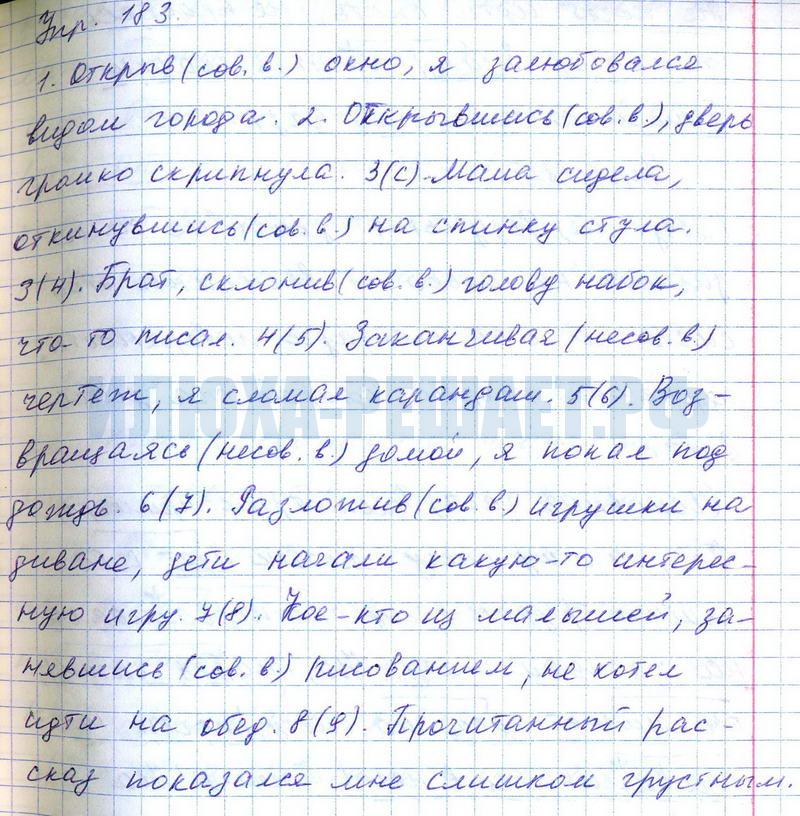 Упр. 183.
1. Открыв (сов. в.) окно, я залюбовался
видом города. 2. Открывшись (сов. в.), дверь
громко скрипнула. 3(с). Мама сидела,
откинувшись (сов. в.) на спинку стула.
3(4). Брат, склонив (сов. в.) голову набок,
что-то писал. 4(5). Заканчивая (несов. в.)
чертеж, я сломал карандаш. 5(6). Воз-
ИЛЮХА-РЕШАЕТ.РФ
вращаясь (несов. в.) домой, я попал под
дождь. 6(7). Разложив (сов. в.) игрушки на
диване, дети начали какую-то интерес-
ную игру. 7(8). Кое-кто из малышей, за-
нявшись (сов. в.) рисованием, не хотел
идти на обед. 8(9). Прочитанный рас-
сказ показался мне слишком грустным.